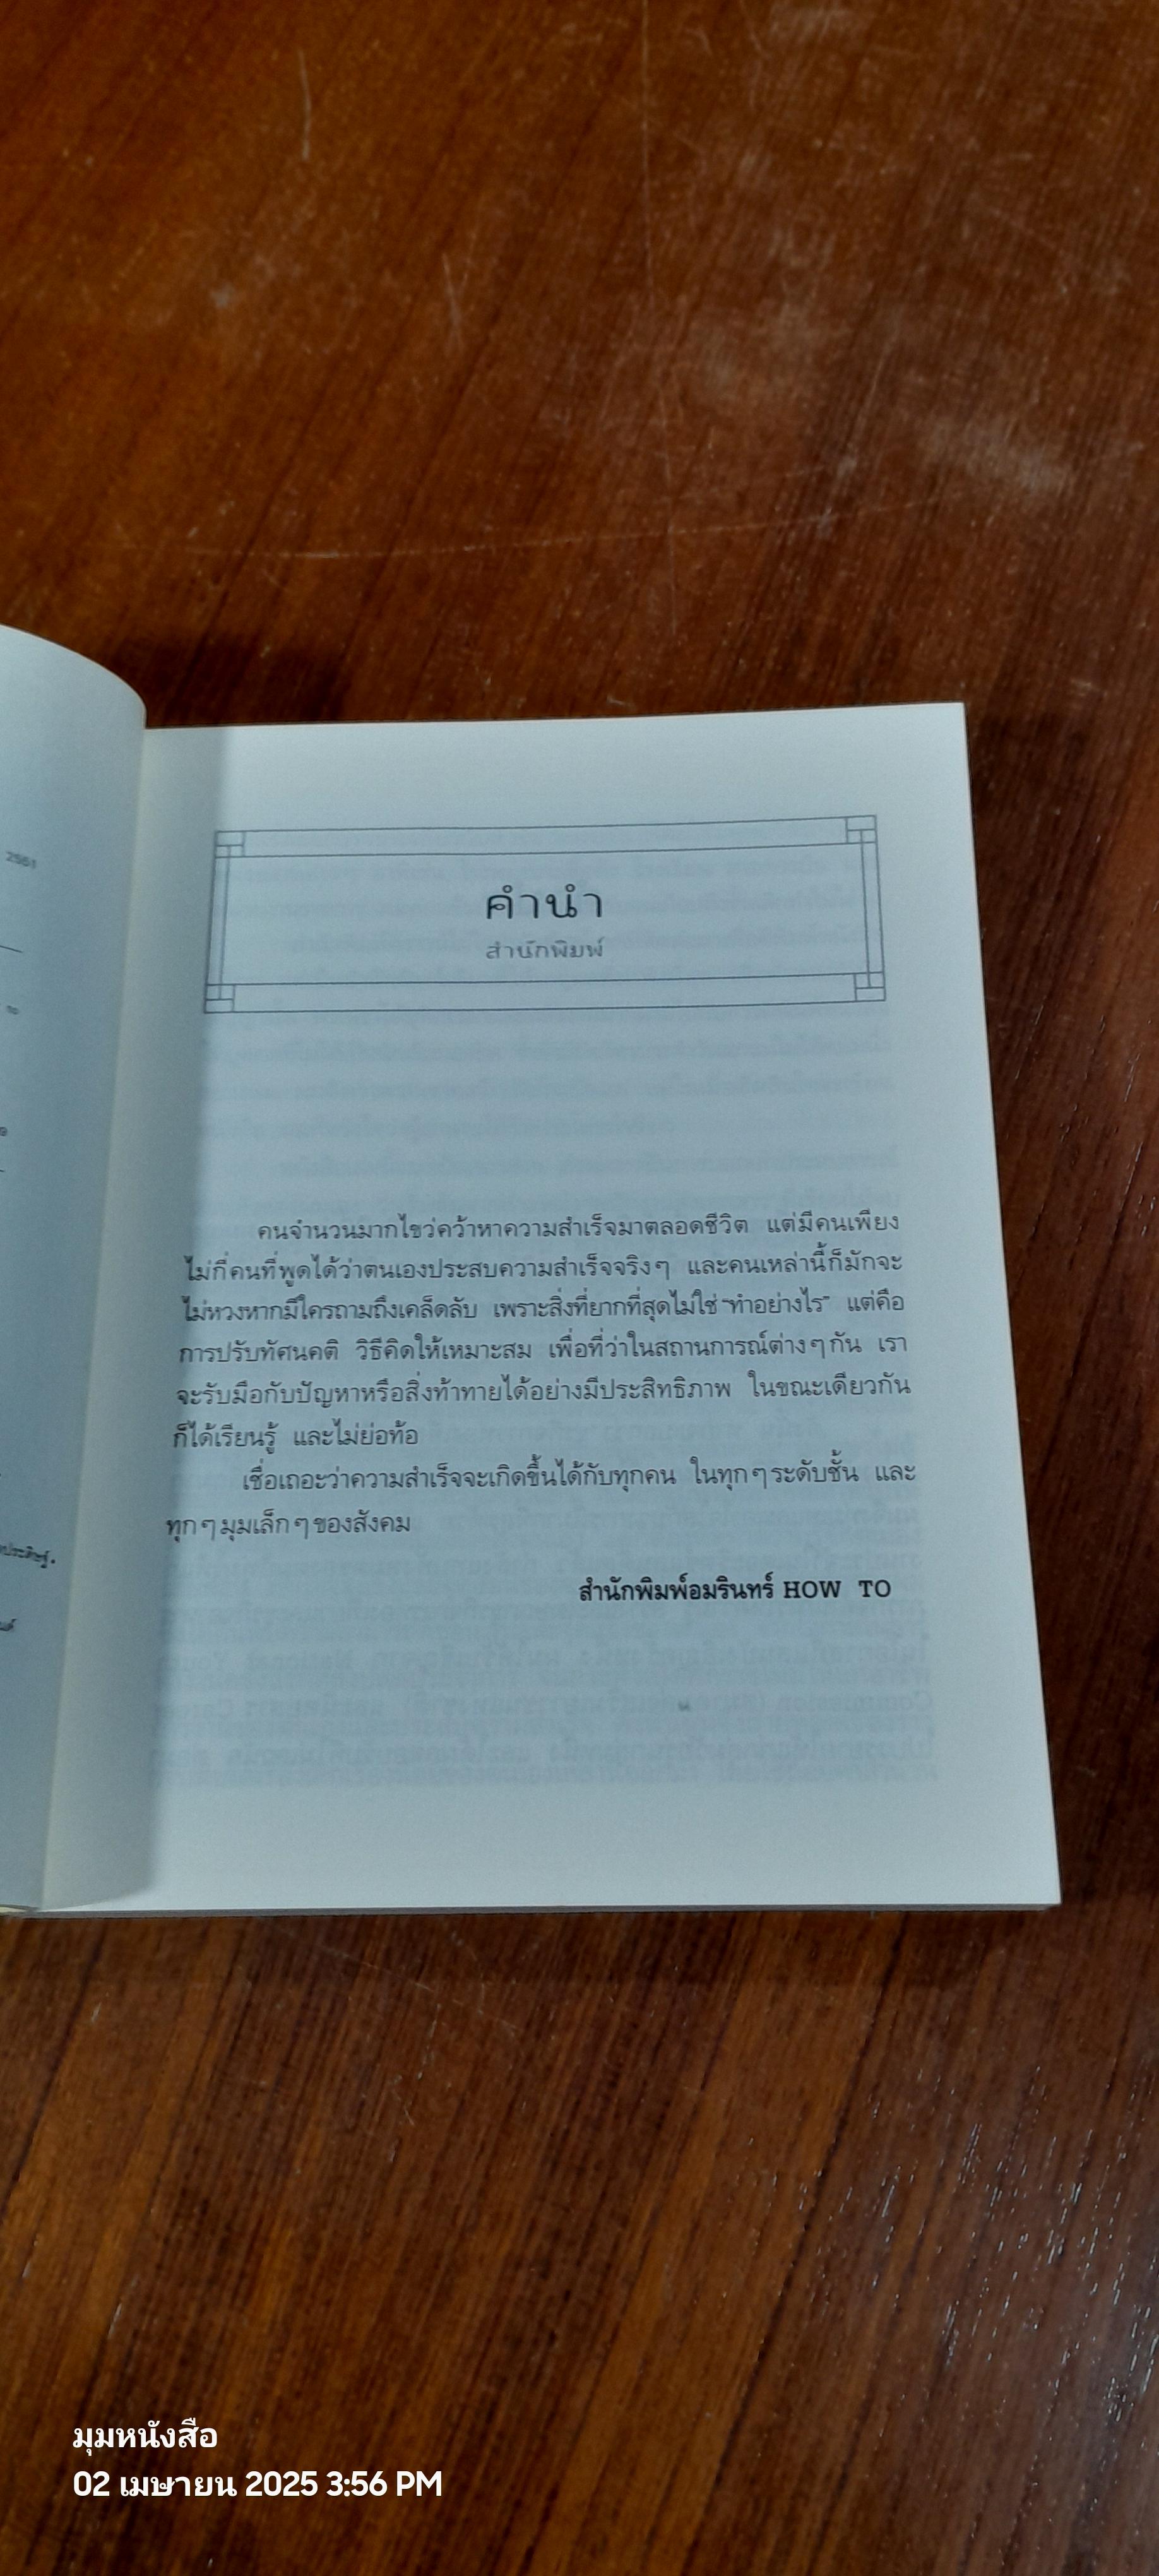 2551
คำนำ
สำนักพิมพ์
คนจำนวนมากไขว่คว้าหาความสำเร็จมาตลอดชีวิต แต่มีคนเพียง
ไม่กี่คนที่พูดได้ว่าตนเองประสบความสำเร็จจริงๆ และคนเหล่านี้ก็มักจะ
ไม่หวงหากมีใครถามถึงเคล็ดลับ เพราะสิ่งที่ยากที่สุดไม่ใช่ “ทำอย่างไร” แต่คือ
การปรับทัศนคติ วิธีคิดให้เหมาะสม เพื่อที่ว่าในสถานการณ์ต่างๆ กัน เรา
จะรับมือกับปัญหาหรือสิ่งท้าทายได้อย่างมีประสิทธิภาพ ในขณะเดียวกัน
ก็ได้เรียนรู้ และไม่ย่อท้อ
เชื่อเถอะว่าความสำเร็จจะเกิดขึ้นได้กับทุกคน ในทุกๆ ระดับชั้น และ
ทุกๆ มุมเล็กๆ ของสังคม
สำนักพิมพ์อมรินทร์ HOW TO
มุมหนังสือ
02 เมษายน 2025 3:56 PM